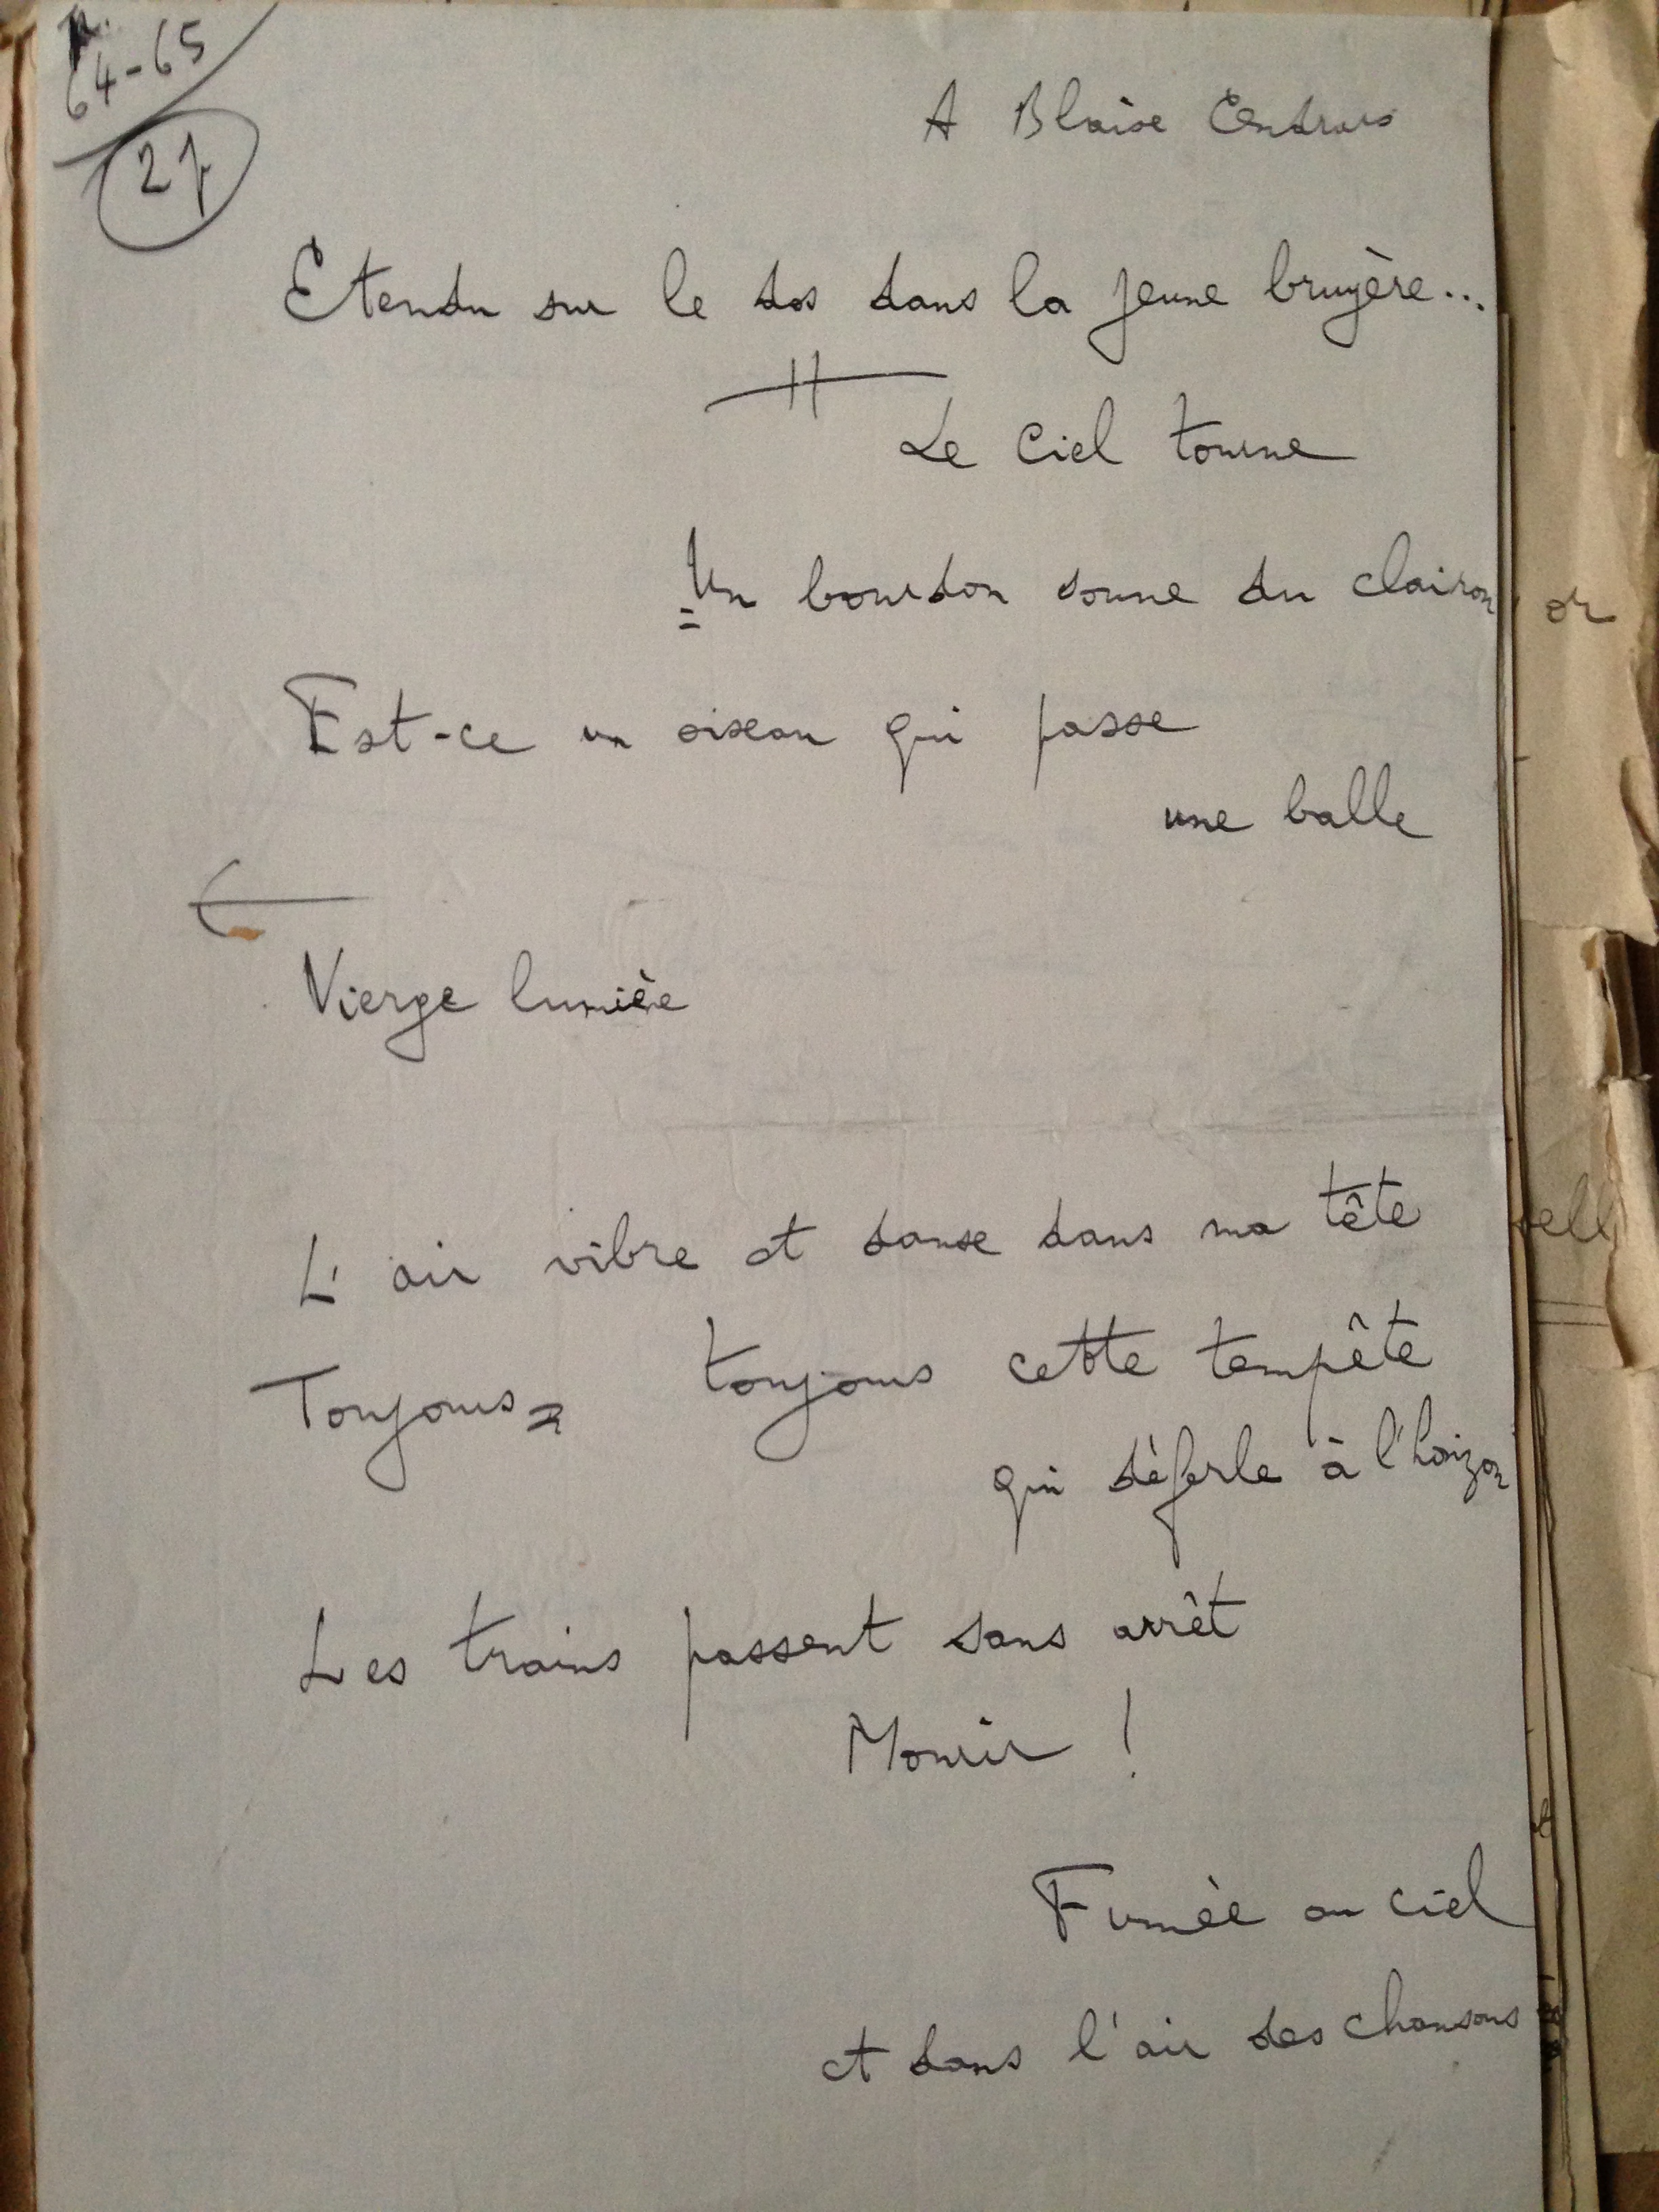 64-65
21
A Blaise Cendrars
Etendu sur le dos dans la jeune bruyère...
Le Ciel tourne
Un bourdon sonne du clairon
Est-ce un oiseau qui passe
une balle
Vierge lumière
L'air vibre et danse dans ma tête
Toujours toujours cette tempête
qui déferle à l'horizon
Les trains passent sans arrêt
Mourir !
Fumée au ciel
et dans l'air des chansons